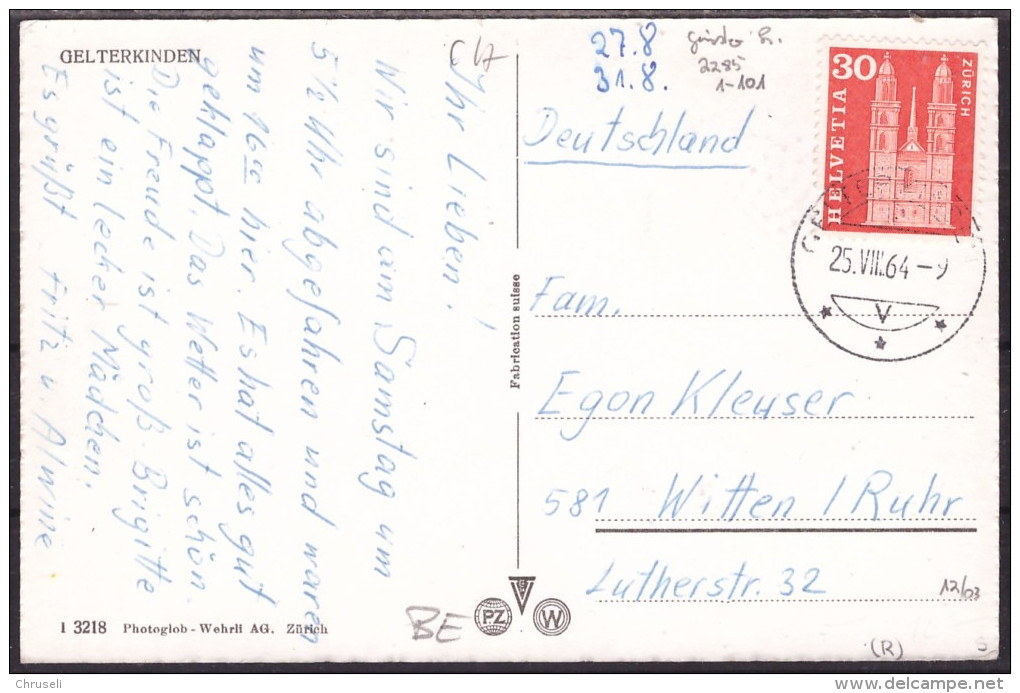 GELTERKINDEN
CH
Ihr Lieben!
Wir sind am Samstag um
5½ Uhr abgefahren und waren
um 16 00 hier. Es hat alles gut
geklappt. Das Wetter ist schön.
Die Freude ist groß. Brigitte
ist ein lecker Mädchen.
Es grüßt Fritz u. Alwine
1 3218 Photoglob - Wehrli AG. Zürich
BE
Fabrication suisse
PZ
W
27.8
31.8.
2285
1-101
HELVETIA
30
ZÜRICH
25.VIII.64-9
V
Deutschland
Fam.
Egon Kleuser
581 Witten / Ruhr
Lutherstr. 32
12/03
(R)
S
© Chruseli
delcampe.net